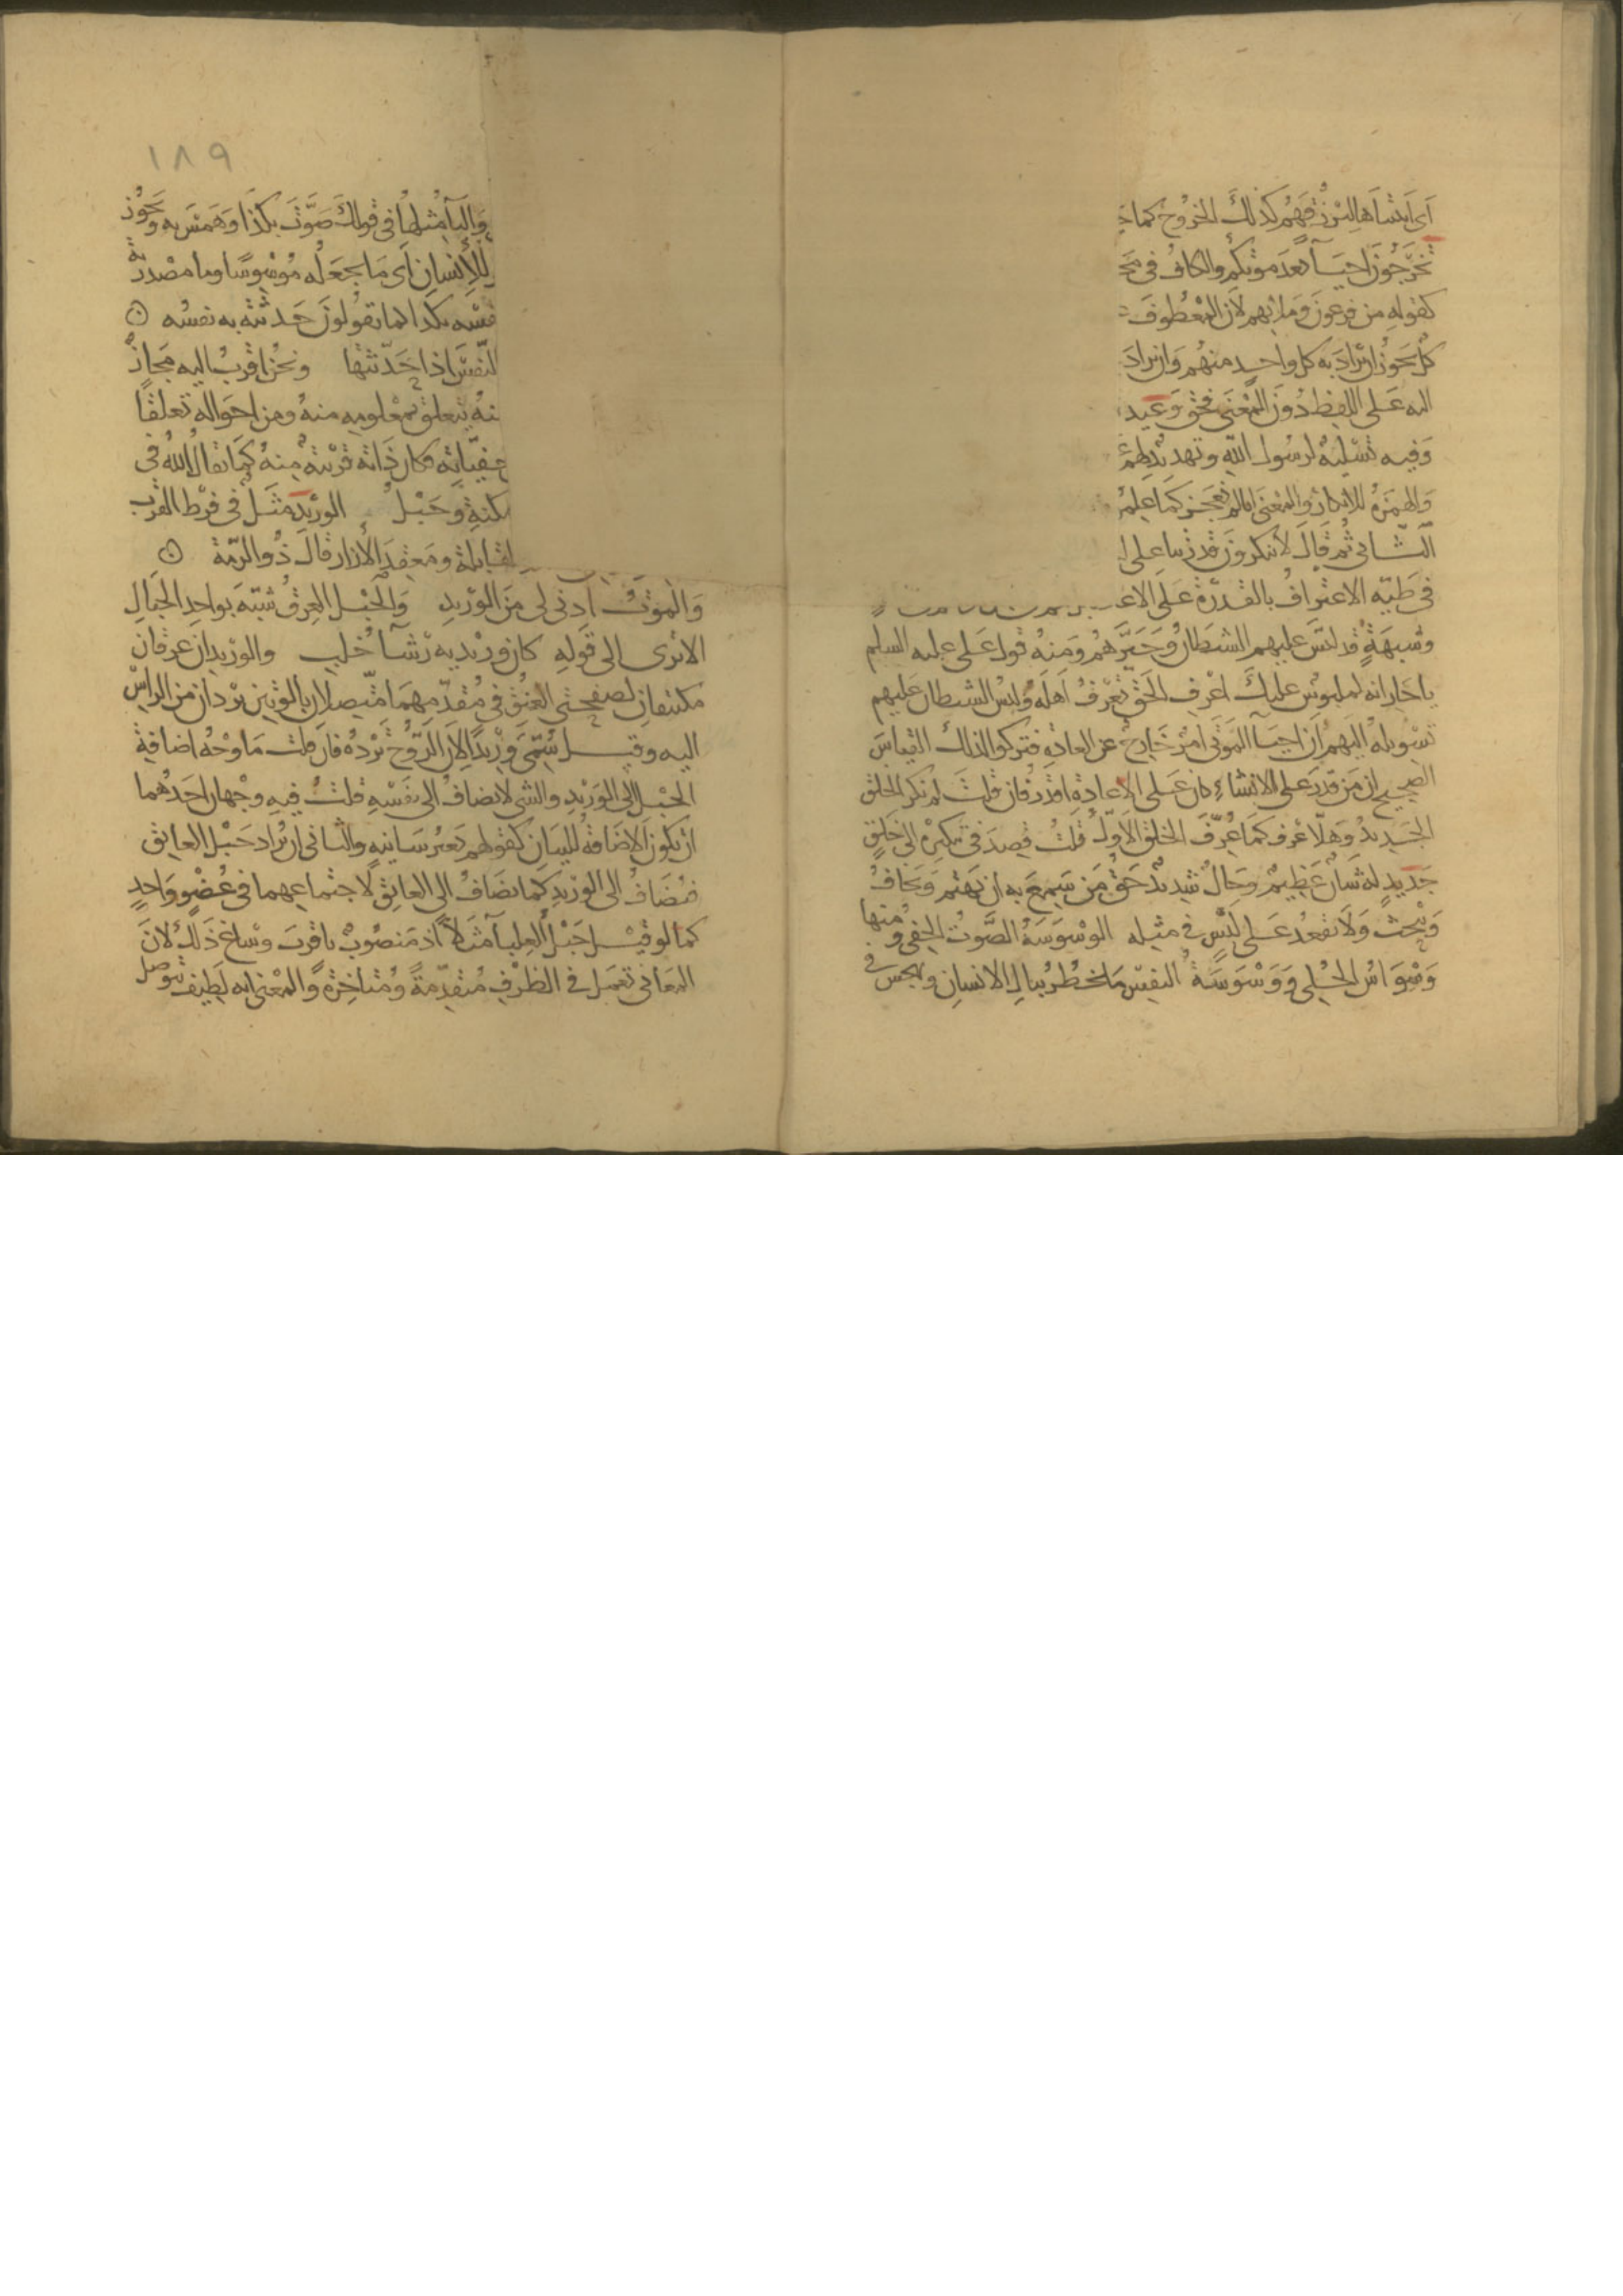 اى ابتتناها لنرزقهم كذلك الخروج كما
تخرجون احياء بعد موتكم والكاف فى
كقوله من فرعون وملايهم لان المعطوف
كل يجوز ان يراد به كل واحد منهم وان يراد
اليه على اللفظ دون المعنى فحق وعيد
وفيه تسلية لرسول الله وتهديد لهم
والهمزة للانكار والمعنى انا لم نعجز كما علم
الثانى ثم قال لا ينكرون قدرتنا على
فى طيه الاعتراف بالقدرة على
وشبهة قد لبس عليهم الشيطان وحيرهم ومنه قول على عليه السلم
يا حار انه لملبوس عليك اعرف الحق تعرف اهله ولبس الشيطان عليهم
تسويله اليهم ان احياء الموتى امر خارج عن العادة فتركوا لذلك القياس
الصحيح ان من قدر على الانشاء كان على الاعادة اقدر فان قلت لم نكر الخلق
الجديد وهلا عرف كما عرف الخلق الاول قلت قصد فى تنكيره الى خلق
جديد له شان عظيم وحال شديد حق من سمع به ان يهتم به ويخاف
ويبحث ولا تقعد على لبس فى مثله الوسوسة الصوت الخفى ومنها
وسواس الحلى ووسوسة النفس ما يخطر ببال الانسان ويهجس فى
١٨٩
والباء مثلها فى قولك صوت بكذا وهمس به ويجوز
للانسان اى ما يجعله موسوسا وما مصدرية
نفسه بكذا كما تقولون حدثته به نفسه
النفس اذا حدثتها ونحن اقرب اليه مجاز
منه يتعلق بمعلومه منه ومن احواله تعلقا
خفياته فكان ذاته قريبة منه كما يقال الله فى
مكنة وحبل الوريد مثل فى فرط القرب
القابلة ومعقد الازار قال ذو الرمة
والموت ادنى لى من الوريد والحبل العرق شبه بواحد الحبال
الا ترى الى قوله كان وريديه رشاء خلب والوريدان عرقان
مكتنفان لصفحتى العنق فى مقدمهما متصلان بالوتين يردان من الراس
اليه وقيل سمى وريدا لان الروح ترده فان قلت ما وجه اضافة
الحبل الى الوريد والشى لا يضاف الى نفسه قلت فيه وجهان احدهما
ان تكون الاضافة للبيان كقولهم بعير سانية والثانى ان يراد حبل العاتق
فيضاف الى الوريد كما يضاف الى العاتق لاجتماعهما فى عضو واحد
كما لو قيل حبل العلباء مثلا اذ منصوب باقرب وساغ ذلك لان
المعانى تعمل فى الظرف متقدمة ومتاخرة والمعنى انه لطيف توصل